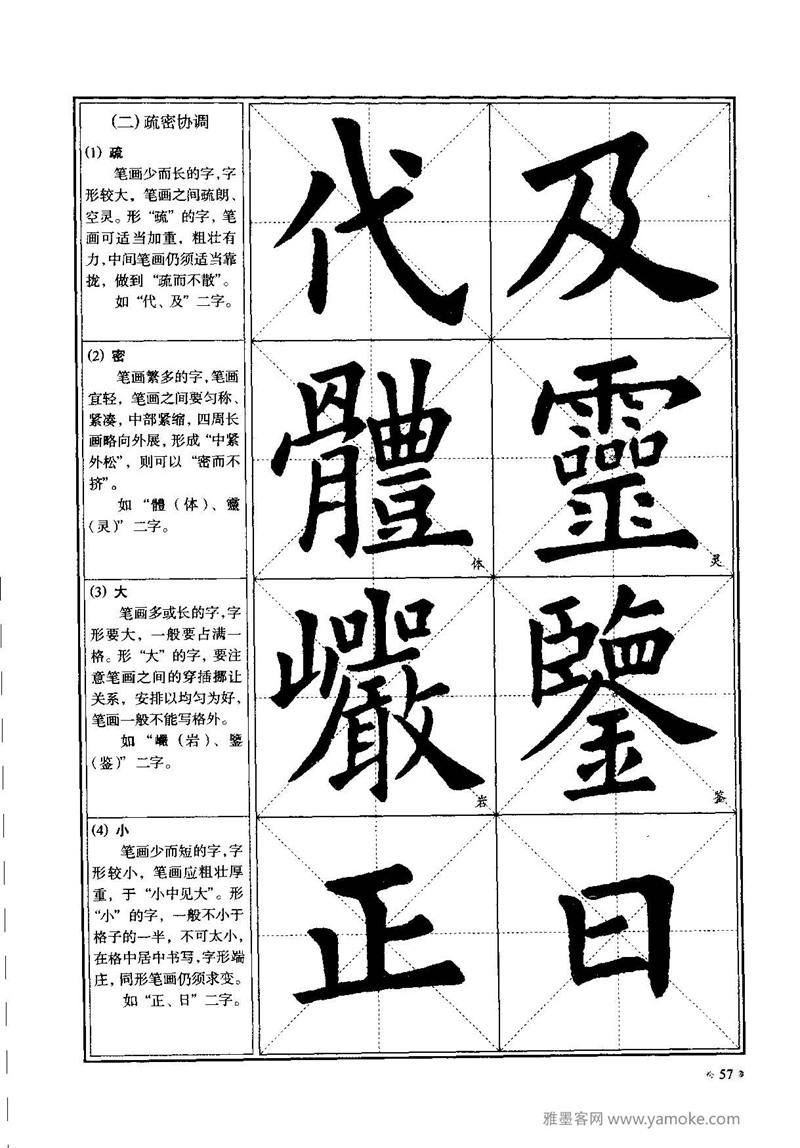 (二)疏密协调
(1) 疏
笔画少而长的字,字
形较大，笔画之间疏朗、
空灵。形“疏”的字，笔
画可适当加重，粗壮有
力,中间笔画仍须适当靠
拢，做到“疏而不散”。
如“代、及”二字。
代 及
(2) 密
笔画繁多的字,笔画
宜轻，笔画之间要匀称、
紧凑，中部紧缩，四周长
画略向外展，形成“中紧
外松”，则可以“密而不
挤”。
如“體（体）、靈
（灵）”二字。
體 靈
体 灵
(3) 大
笔画多或长的字,字
形要大，一般要占满一
格。形“大”的字，要注
意笔画之间的穿插挪让
关系，安排以均匀为好，
笔画一般不能写格外。
如“巗（岩）、鑒
（鉴）”二字。
巗 鑒
岩 鉴
(4) 小
笔画少而短的字,字
形较小，笔画应粗壮厚
重，于“小中见大”。形
“小”的字，一般不小于
格子的一半，不可太小，
在格中居中书写,字形端
庄,同形笔画仍须求变。
如“正、日”二字。
正 日
57
雅墨客网 www.yamoke.com